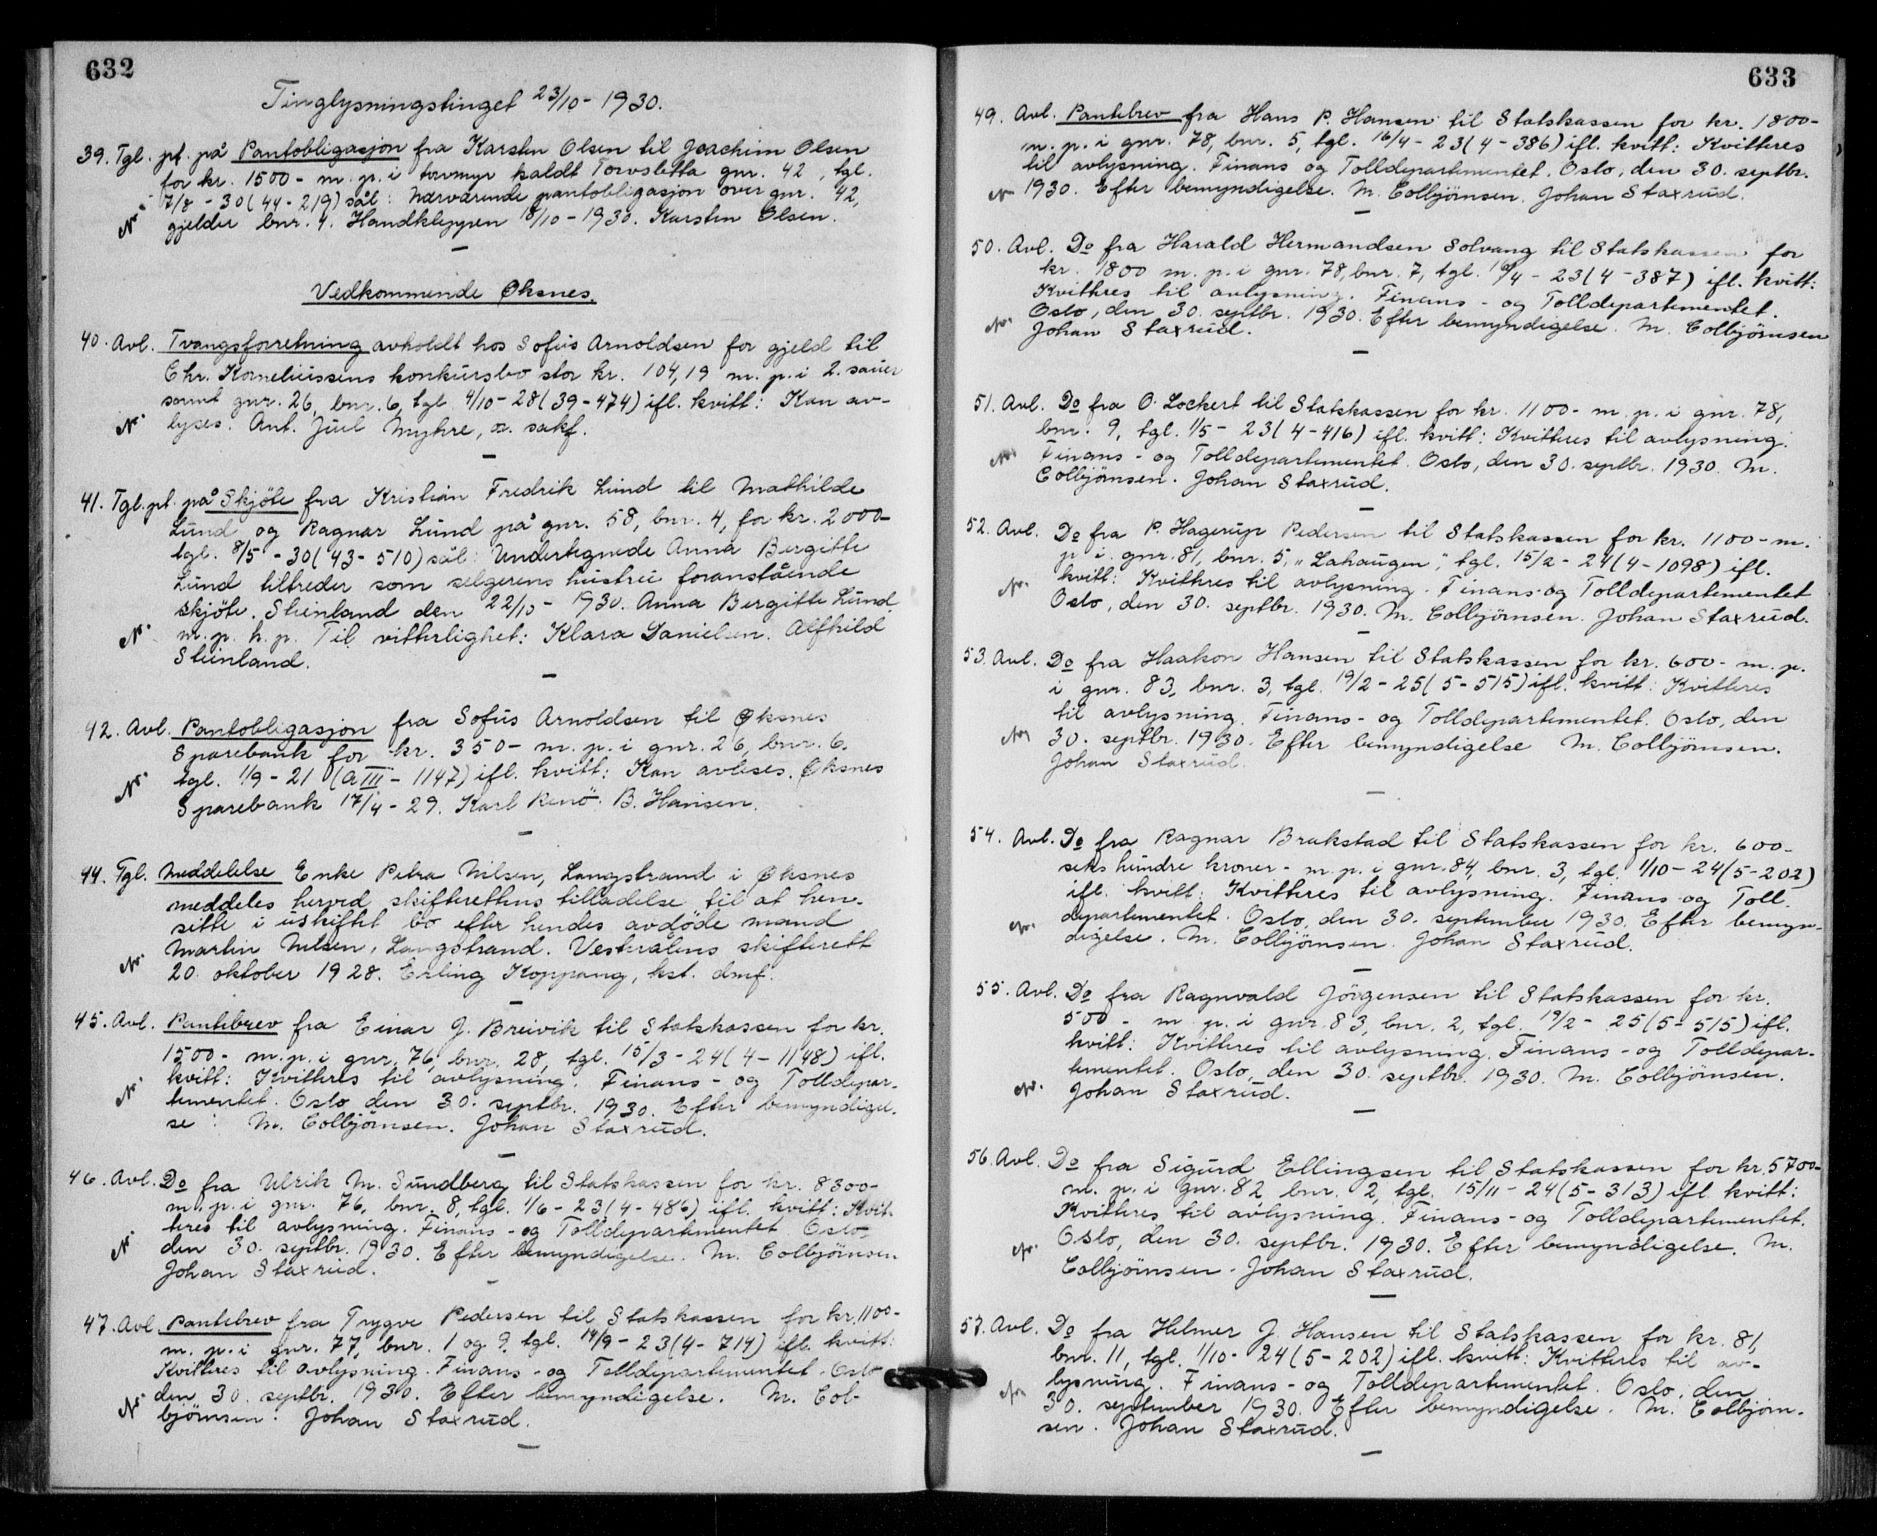 632
Tinglysningstinget 23/10 - 1930.
39. Tgl. pt. på Pantobligasjon fra Karsten Olsen til Joachim Olsen
for kr. 1500 - m. p. i torvmyr kaldt Torvsletta gnr. 42, tgl.
7/8 - 30 (44 - 219) sål: Nærværende pantobligasjon over gnr. 42,
gjelder bnr. 4. Handkleppen 18/10 - 1930. Karsten Olsen.
Vedkommende Øksnes.
40. Avl. Tvangsforretning avholdt hos Sofus Arnoldsen for gjeld til
Chr. Korneliussens konkursbo stor kr. 104,19 m. p. i 2. sauer
samt gnr. 26, bnr. 6, tgl. 4/10 - 28 (39 - 474) ifl. kvitt: Kan av-
lyses. Ant. Juel Myhre, o. sakf.
41. Tgl. pt. på Skjöte fra Kristian Fredrik Lund til Mathilde
Lund og Ragnar Lund på gnr. 58, bnr. 4, for kr. 2000 -
tgl. 8/5 - 30 (43 - 510) sål: Undertegnede Anna Bergitte
Lund tiltreder som selgerens hustru foranstående
skjöte. Steinland den 22/10 - 1930. Anna Bergitte Lund
m. p. h. p. Til vitterlighet: Klara Danielsen. Alfhild
Steinland.
42. Avl. Pantobligasjon fra Sofus Arnoldsen til Øksnes
Sparebank for kr. 350 - m. p. i gnr. 26, bnr. 6.
tgl. 1/9 - 21 (A III - 1147) ifl. kvitt: Kan avleses. Øksnes
Sparebank 17/4 - 29. Karl Renö. B. Hansen.
44. Tgl. Meddelelse Enke Petra Nilsen, Langstrand i Øksnes
meddeles herved skifterettens tilladelse til at hen-
sitte i uskiftet bo efter hendes avdöde mand
Martin Nilsen, Langstrand. Vesteralens skifterett
20. oktober 1928. Erling Koppang, kst. dmf.
45. Avl. Pantebrev fra Einar J. Breivik til Statskassen for kr.
1500 - m. p. i gnr. 76, bnr. 28, tgl. 15/3 - 24 (4 - 1148) ifl.
kvitt: Kvitteres til avlysning. Finans - og Tolldepar-
tementet. Oslo den 30. septbr. 1930. Efter bemyndigel-
se: M. Colbjörnsen. Johan Staxrud.
46. Avl. Do fra Ulrik M. Sundberg til Statskassen for kr. 8300 -
m. p. i gnr. 76, bnr. 8, tgl. 1/6 - 23 (4 - 486) ifl. kvitt: Kvit-
teres til avlysning. Finans - og Tolldepartementet Oslo,
den 30. septbr. 1930. Efter bemyndigelse. M. Colbjörnsen
Johan Staxrud.
47. Avl. Pantebrev fra Trygve Pedersen til Statskassen for kr. 1100 -
m. p. i gnr. 77, bnr. 1 og 9, tgl. 14/9 - 23 (4 - 714) ifl. kvitt:
Kvitteres til avlysning. Finans - og Tolldepartementet. Oslo
den 30. septbr. 1930. Efter bemyndigelse. M. Col-
björnsen. Johan Staxrud.
633
49. Avl. Pantebrev fra Hans P. Hansen til Statskassen for kr. 1800 -
m. p. i gnr. 78, bnr. 5, tgl. 16/4 - 23 (4 - 386) ifl. kvitt: Kvitteres
til avlysning. Finans og Tolldepartementet. Oslo, den 30. septbr.
1930. Efter bemyndigelse. M. Colbjörnsen. Johan Staxrud.
50. Avl. Do fra Harald Hermandsen Solvang til Statskassen for
kr. 1800 m. p. i gnr. 78, bnr. 7, tgl. 16/4 - 23 (4 - 387) ifl. kvitt:
Kvitteres til avlysning. Finans - og Tolldepartementet.
Oslo, den 30. septbr. 1930. Efter bemyndigelse. M. Colbjörnsen
Johan Staxrud.
51. Avl. Do fra O. Lockert til Statskassen for kr. 1100 - m. p. i gnr. 78,
bnr. 9, tgl. 1/5 - 23 (4 - 416) ifl. kvitt: Kvitteres til avlysning.
Finans - og Tolldepartementet. Oslo, den 30. septbr. 1930. M.
Colbjörnsen. Johan Staxrud.
52. Avl. Do fra P. Hagerup Pedersen til Statskassen for kr. 1100 - m.
p. i gnr. 81, bnr. 5, "Lahaugen", tgl. 15/2 - 24 (4 - 1098) ifl.
kvitt: Kvitteres til avlysning. Finans - og Tolldepartementet
Oslo, den 30. septbr. 1930. M. Colbjörnsen. Johan Staxrud.
53. Avl. Do fra Haakon Hansen til Statskassen for kr. 600 - m. p.
i gnr. 83, bnr. 3, tgl. 19/2 - 25 (5 - 515) ifl. kvitt: Kvitteres
til avlysning. Finans - og Tolldepartementet. Oslo, den
30. septbr. 1930. Efter bemyndigelse M. Colbjörnsen.
Johan Staxrud.
54. Avl. Do fra Ragnar Brakstad til Statskassen for kr. 600 -
seks hundre kroner - m. p. i gnr. 84, bnr. 3, tgl. 1/10 - 24 (5 - 202)
ifl. kvitt: Kvitteres til avlysning. Finans - og Toll.
departementet. Oslo, den 30. september 1930. Efter bemyn-
digelse. M. Colbjörnsen. Johan Staxrud.
55. Avl. Do fra Ragnvald Jörgensen til Statskassen for kr.
500 - m. p. i gnr. 83, bnr. 2, tgl. 19/2 - 25 (5 - 515) ifl.
kvitt: Kvitteres til avlysning. Finans - og Tolldepar-
tementet. Oslo, den 30. septbr. 1930. M. Colbjörnsen.
Johan Staxrud.
56. Avl. Do fra Sigurd Ellingsen til Statskassen for kr. 5700 -
m. p. i gnr. 82, bnr. 2, tgl. 15/11 - 24 (5 - 313) ifl. kvitt:
Kvitteres til avlysning. Finans - og Tolldepartementet.
Oslo, den 30. septbr. 1930. Efter bemyndigelse. M.
Colbjörnsen. Johan Staxrud.
57. Avl. Do fra Helmer J. Hansen til Statskassen for kr. 81,
bnr. 11, tgl. 1/10 - 24 (5 - 202) ifl. kvitt: Kvitteres til av-
lysning. Finans - og Tolldepartementet. Oslo, den
30. september 1930. Efter bemyndigelse. M. Colbjörn-
sen. Johan Staxrud.